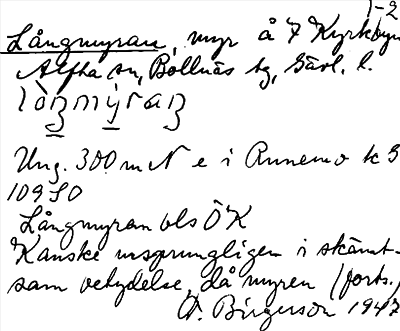 1-2
Långmyran, myr å 7 Kyrkbyn
Alfta sn, Bollnäs tg, Gävl. l.
Ung. 300 m N e i Runemo k 3
109 SO
Långmyran bls ÖK
Kanske ursprungligen i skämt-
sam betydelse, då myren (forts.)
Birgerson 1947